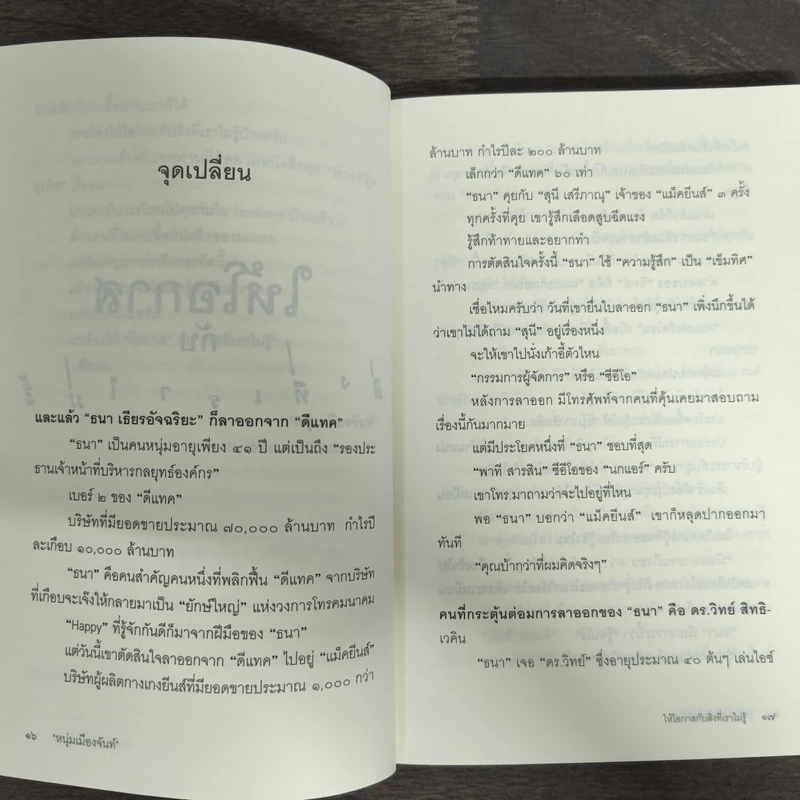 จุดเปลี่ยน
และแล้ว “ธนา เธียรอัจฉริยะ” ก็ลาออกจาก “ดีแทค”
“ธนา” เป็นคนหนุ่มอายุเพียง ๔๑ ปี แต่เป็นถึง “รองประ
ธานเจ้าหน้าที่บริหารกลยุทธ์องค์กร”
เบอร์ ๒ ของ “ดีแทค”
บริษัทที่มียอดขายประมาณ ๗๐,๐๐๐ ล้านบาท กำไรปี
ละเกือบ ๑๐,๐๐๐ ล้านบาท
“ธนา” คือคนสำคัญคนหนึ่งที่พลิกฟื้น “ดีแทค” จากบริษัท
ที่เกือบจะเจ๊งให้กลายมาเป็น “ยักษ์ใหญ่” แห่งวงการโทรคมนาคม
“Happy” ที่รู้จักกันดีก็มาจากฝีมือของ “ธนา”
แต่วันนี้เขาตัดสินใจลาออกจาก “ดีแทค” ไปอยู่ “แม็คยีนส์”
บริษัทผู้ผลิตกางเกงยีนส์ที่มียอดขายประมาณ ๑,๐๐๐ กว่า
๑๖ ‘หนุ่มเมืองจันท์’
ล้านบาท กำไรปีละ ๒๐๐ ล้านบาท
เล็กกว่า “ดีแทค” ๖๐ เท่า
“ธนา” คุยกับ “สุณี เสรีภาณุ” เจ้าของ “แม็คยีนส์” ๓ ครั้ง
ทุกครั้งที่คุย เขารู้สึกเลือดสูบฉีดแรง
รู้สึกท้าทายและอยากทำ
การตัดสินใจครั้งนี้ “ธนา” ใช้ “ความรู้สึก” เป็น “เข็มทิศ”
นำทาง
เชื่อไหมครับว่า วันที่เขายื่นใบลาออก “ธนา” เพิ่งนึกขึ้นได้
ว่าเขาไม่ได้ถาม “สุณี” อยู่เรื่องหนึ่ง
จะให้เขาไปนั่งเก้าอี้ตัวไหน
“กรรมการผู้จัดการ” หรือ “ซีอีโอ”
หลังการลาออก มีโทรศัพท์จากคนที่คุ้นเคยมาสอบถาม
เรื่องนี้กันมากมาย
แต่มีประโยคหนึ่งที่ “ธนา” ชอบที่สุด
“พาที สารสิน” ซีอีโอของ “นกแอร์” ครับ
เขาโทร.มาถามว่าจะไปอยู่ที่ไหน
พอ “ธนา” บอกว่า “แม็คยีนส์” เขาก็หลุดปากออกมา
ทันที
“คุณบ้ากว่าที่ผมคิดจริงๆ”
คนที่กระตุ้นต่อมการลาออกของ “ธนา” คือ ดร.วิทย์ สิทธิ-
เวคิน
“ธนา” เจอ “ดร.วิทย์” ซึ่งอายุประมาณ ๔๐ ต้นๆ เล่นไอซ์
ให้โอกาสกับสิ่งที่เราไม่รู้ ๑๗